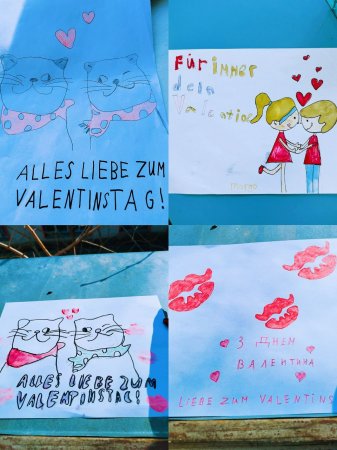 ALLES LIEBE ZUM
VALENTINSTAG!
Für immer
dein
Valentine
ALLES LIEBE ZUM
VALENTINSTAG!
З ДНЕМ
ВАЛЕНТИНА
LIEBE ZUM VALENTINS